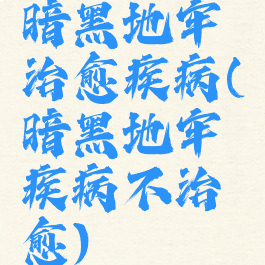 暗黑地牢
治愈疾病(
暗黑地牢
疾病不治
愈)